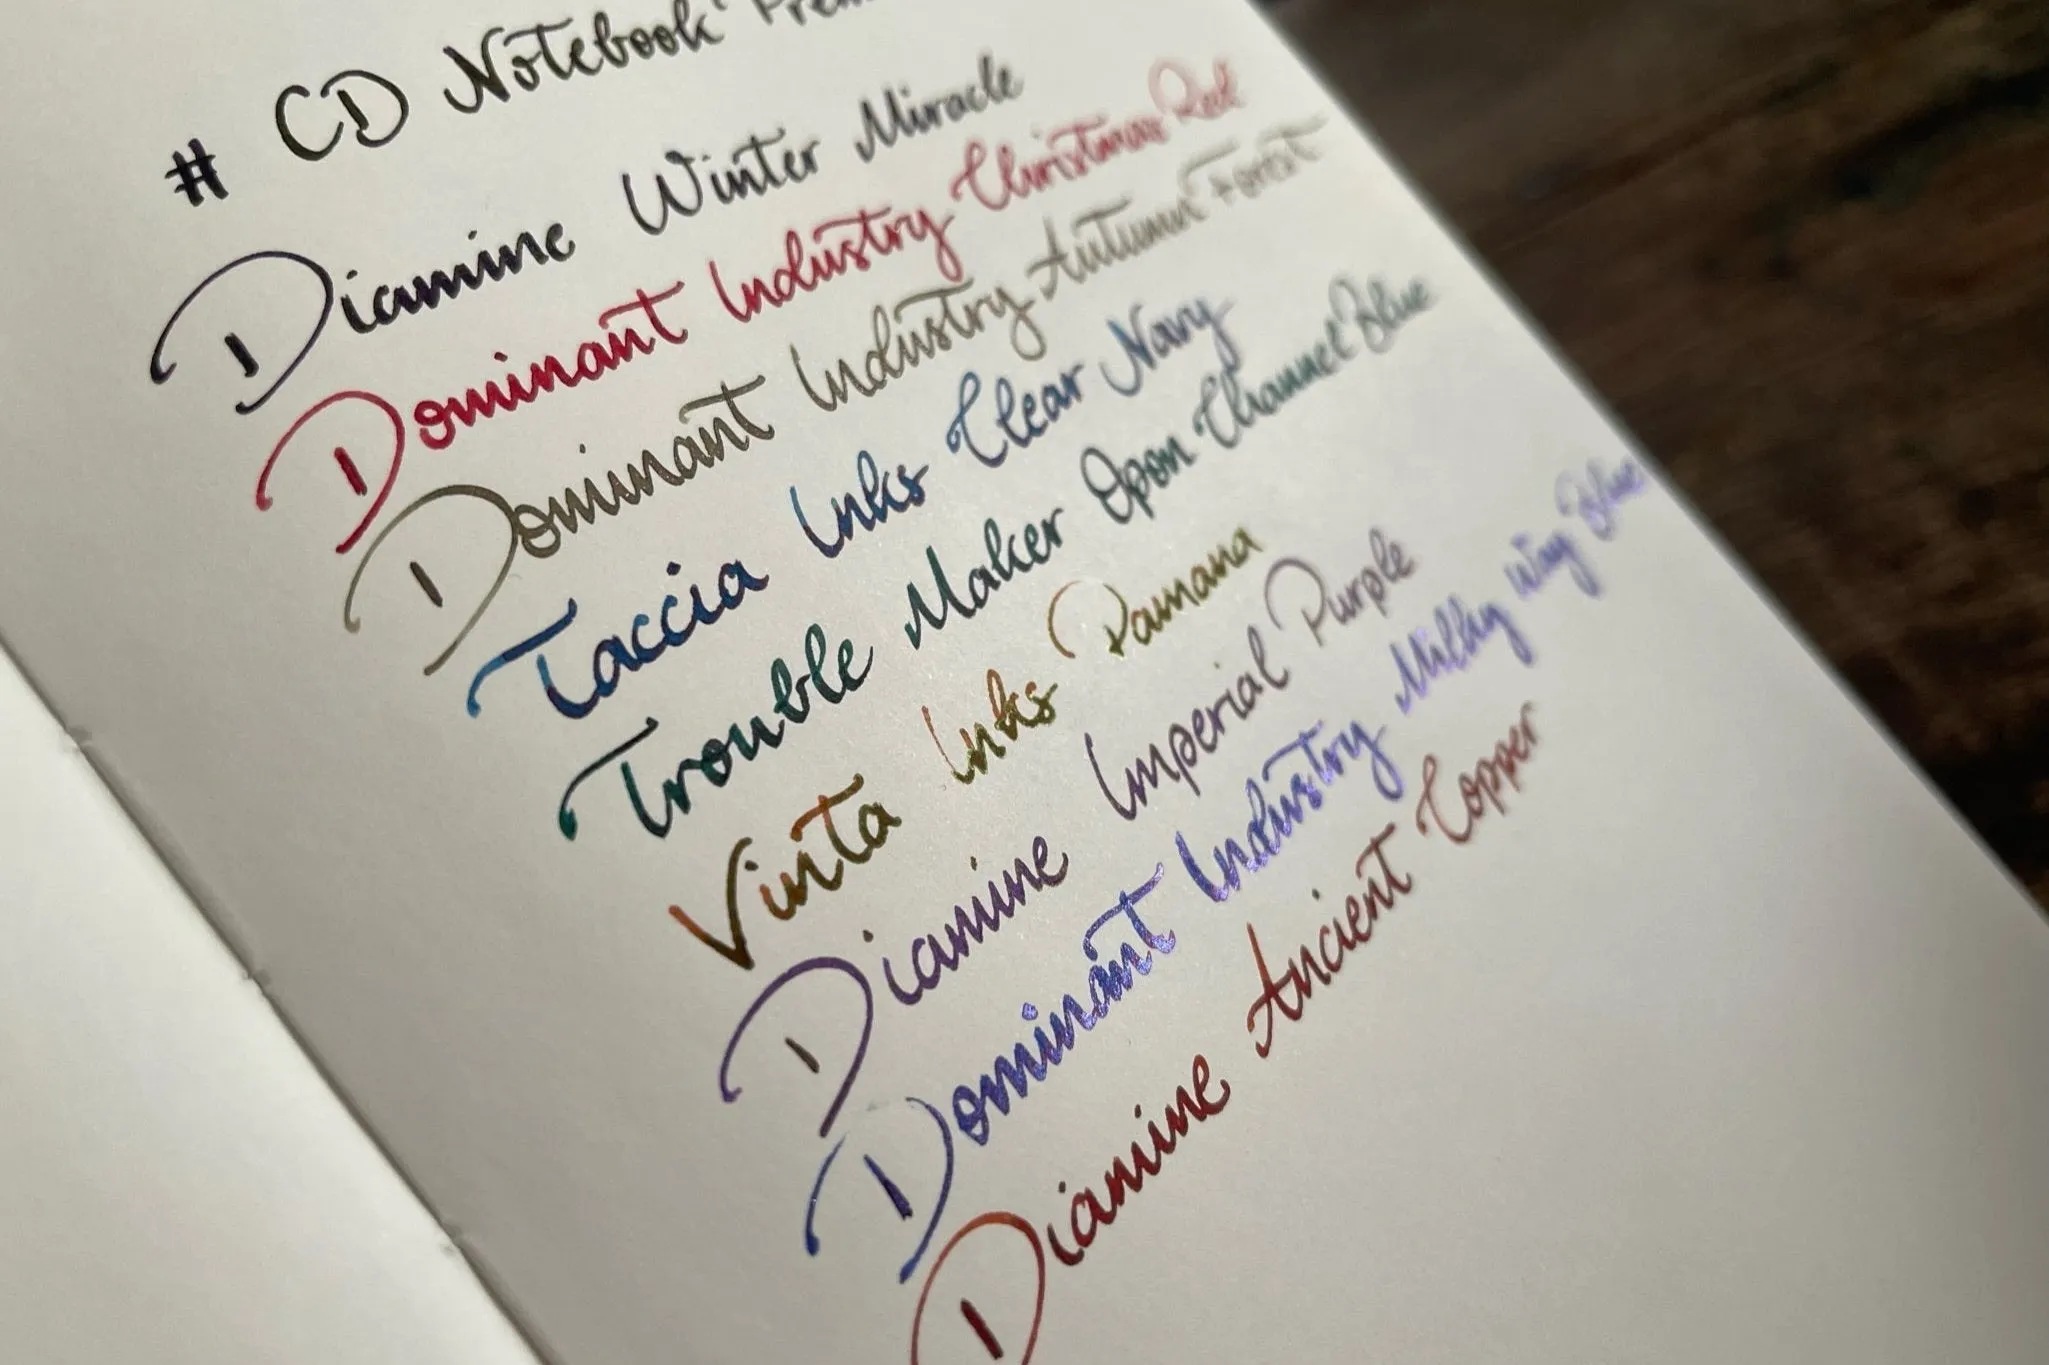 # CD Notebook
Diamine Winter Miracle
Dominant Industry Christmas Red
Dominant Industry Autumn Forest
Taccia Inks Clear Navy
Trouble Maker Opon Channel Blue
Vinta Inks Pamana
Diamine Imperial Purple
Dominant Industry Milky Way Blue
Diamine Ancient Copper